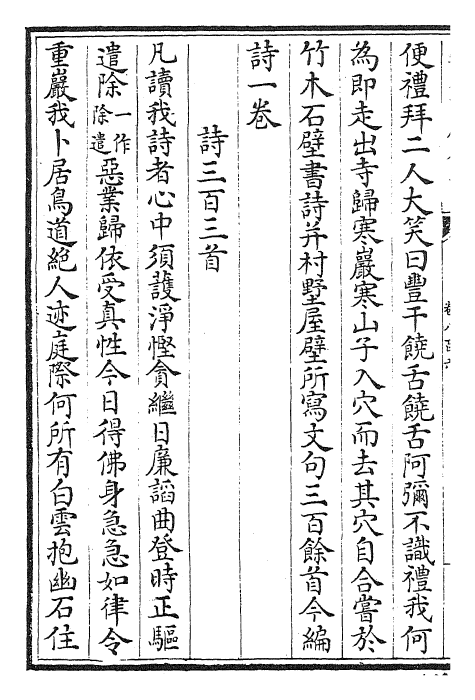 便禮拜二人大笑曰豐干饒舌饒舌阿彌不識禮我何
為即走出寺歸寒巖寒山子入穴而去其穴自合嘗於
竹木石壁書詩并村墅屋壁所寫文句三百餘首今編
詩一卷
詩三百三首
凡讀我詩者心中須護淨慳貪繼日廉諂曲登時正驅
遣除一作除遣惡業歸依受真性今日得佛身急急如律令
重巖我卜居鳥道絕人迹庭際何所有白雲抱幽石住